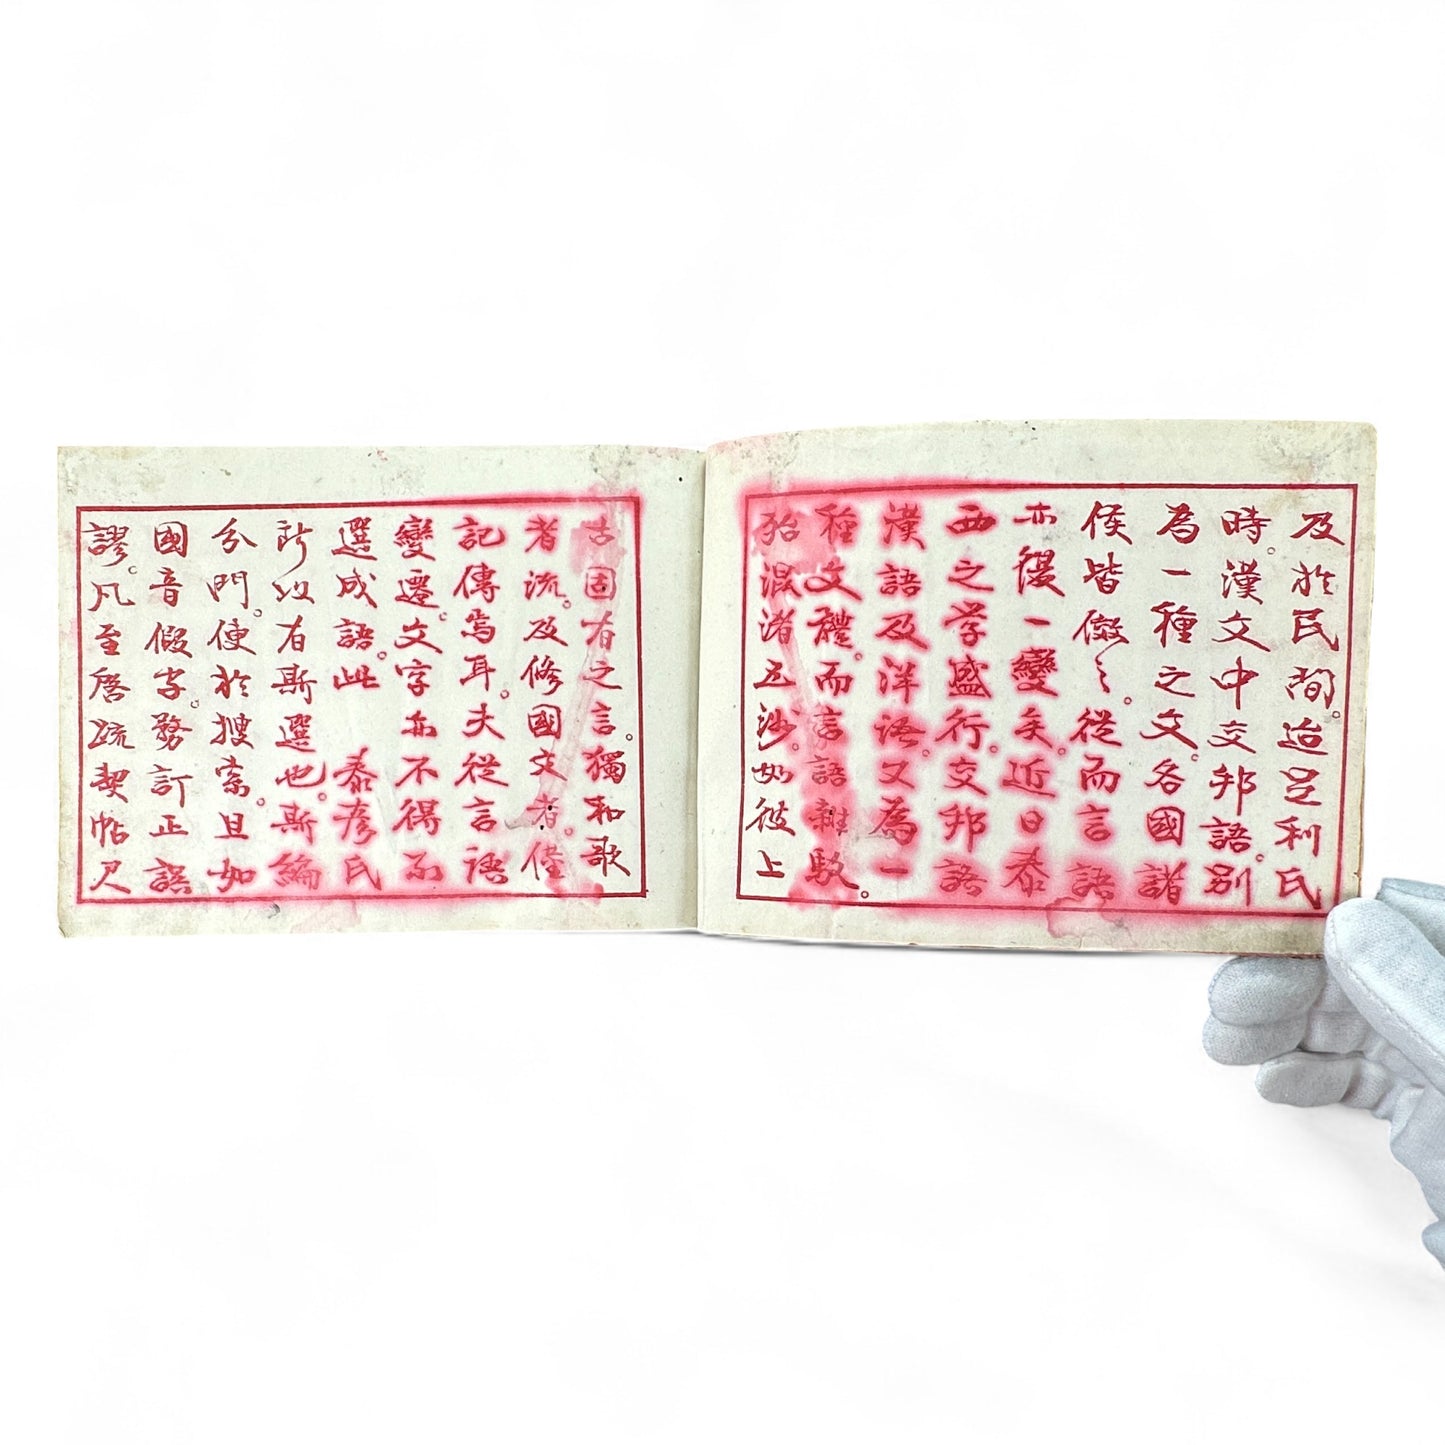 及於民間。迨足利氏
時。漢文中交邦語。別
為一種之文。各國諸
侯皆倣之。從而言語
亦復一變矣。近日泰
西之学盛行。交邦語
漢語及洋語。又為一
種文體。而言語雜駁。
殆混淆玉沙。如彼上
古固有之言。獨和歌
者流。及修國文者。僅
記傳焉耳。夫從言語
變遷。文字亦不得不
選成語。此 泰彦氏
所以有斯選也。斯編
分門。便於搜索。且如
國音假字。務訂正誤
謬。凡至啓蹠契帖尺